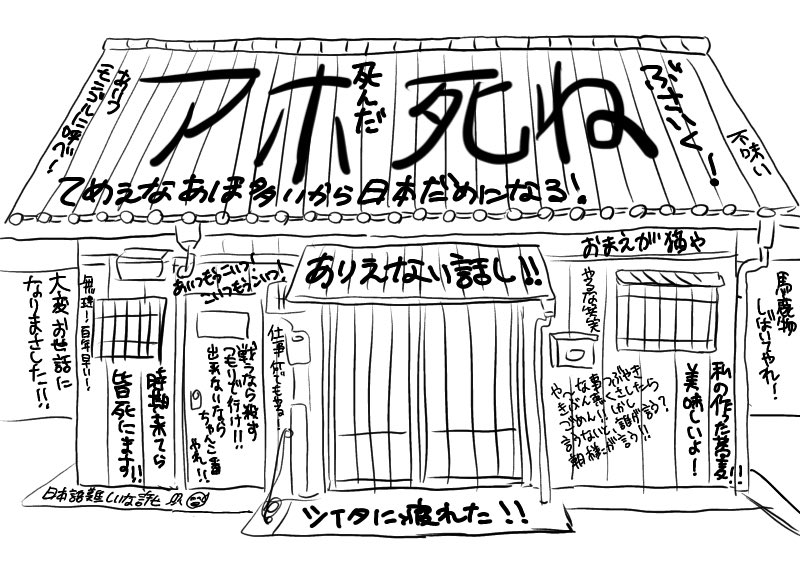 アホ死ね
死んだ
あいつ
モンゴルに呼べ!
ぶさいく!
不味い
てめえなあほ多いから日本だめになる!
ありえない話し!!
おまえが猫や
あいつもうこいつ!
こいつもうこいつ!
大変お世話に
なりまさした!!
無理!百年早い!
時期来てら
皆死にます!!
戦うなら殺す
つもりで行け!!
出来ないなら
ちゃんこ番
やれ!!
仕事何でもある!
やるな笑実
や〜な事つぶやき
きぶん悪くさしたら
ごめん!!しかし
言うないと、誰が言う?
朝様だが言う!!
私の作った蕎麦
美味しいよ!!
馬鹿物
しばいてやれ!
日本語難しいな話し
ツイタに疲れた!!